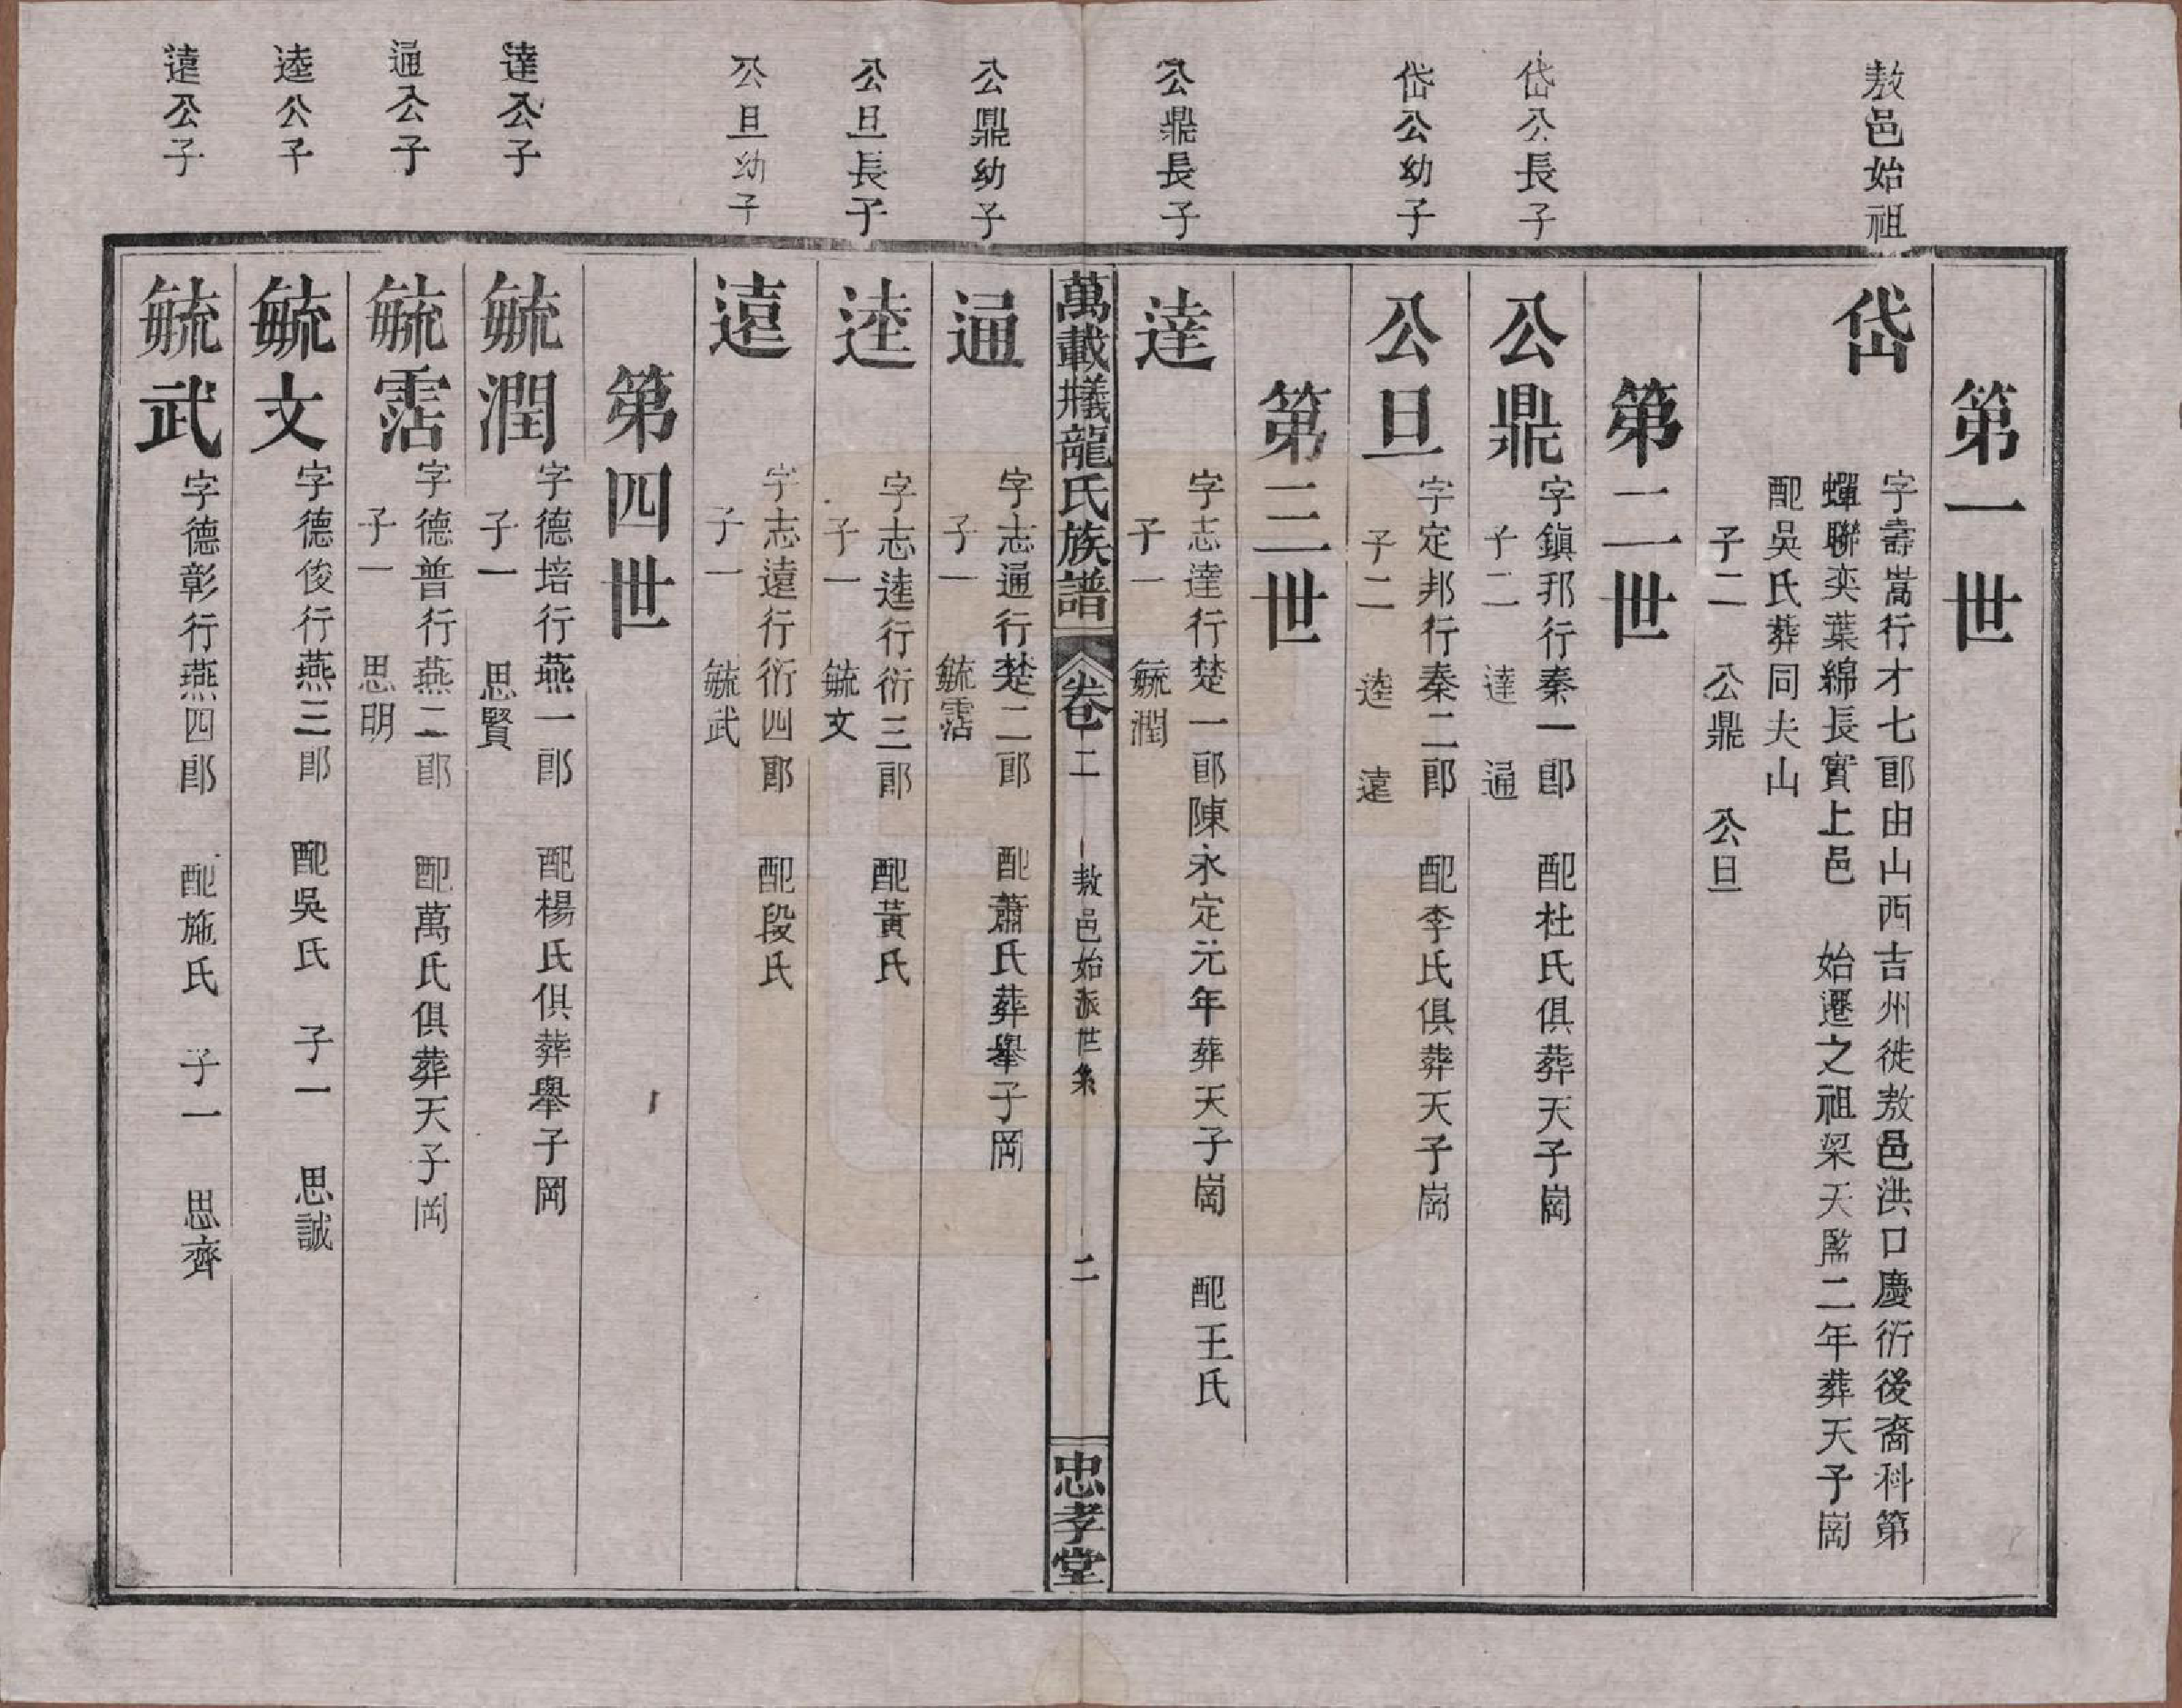 第一世
敖邑始祖
岱
字壽嵩行才七郎由山西吉州徙敖邑洪口慶衍後裔科第
蟬聯奕葉綿長實上邑　始遷之祖梁天監二年葬天子崗
配吳氏葬同夫山
子二　公鼎　公旦
第二世
岱公長子
公鼎
字鎮邦行秦一郎　配杜氏俱葬天子崗
子二　達　通
岱公幼子
公旦
字定邦行秦二郎　配李氏俱葬天子崗
子二　逵　遠
第三世
公鼎長子
達
字志達行楚一郎陳永定元年葬天子崗　配王氏
子一　毓潤
萬載㠖龍氏族譜　卷二　敖邑始派世系　二　忠孝堂
公鼎幼子
通
字志通行楚二郎　配蕭氏葬舉子岡
子一　毓霑
公旦長子
逵
字志逵行衍三郎　配黃氏
子一　毓文
公旦幼子
遠
字志遠行衍四郎　配段氏
子一　毓武
第四世
達公子
毓潤
字德培行燕一郎　配楊氏俱葬舉子岡
子一　思賢
通公子
毓霑
字德普行燕二郎　配萬氏俱葬天子岡
子一　思明
逵公子
毓文
字德俊行燕三郎　配吳氏　子一　思誠
遠公子
毓武
字德彰行燕四郎　配施氏　子一　思齊